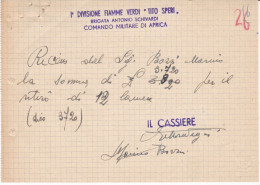 1ª DIVISIONE FIAMME VERDI "TITO SPERI"
BRIGATA ANTONIO SCHIVARDI
COMANDO MILITARE DI APRICA
26
Ricevo dal Sig. Bozzi Marino
3.720
la somma di L. per il
ritiro di 12
(dico 3720)
IL CASSIERE
Marino Bozzi